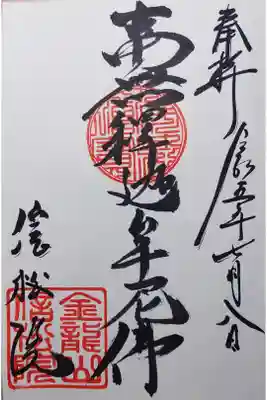 奉拝 令和五年七月八日
南無釋迦牟尼佛
信松院
金龍山
信松院